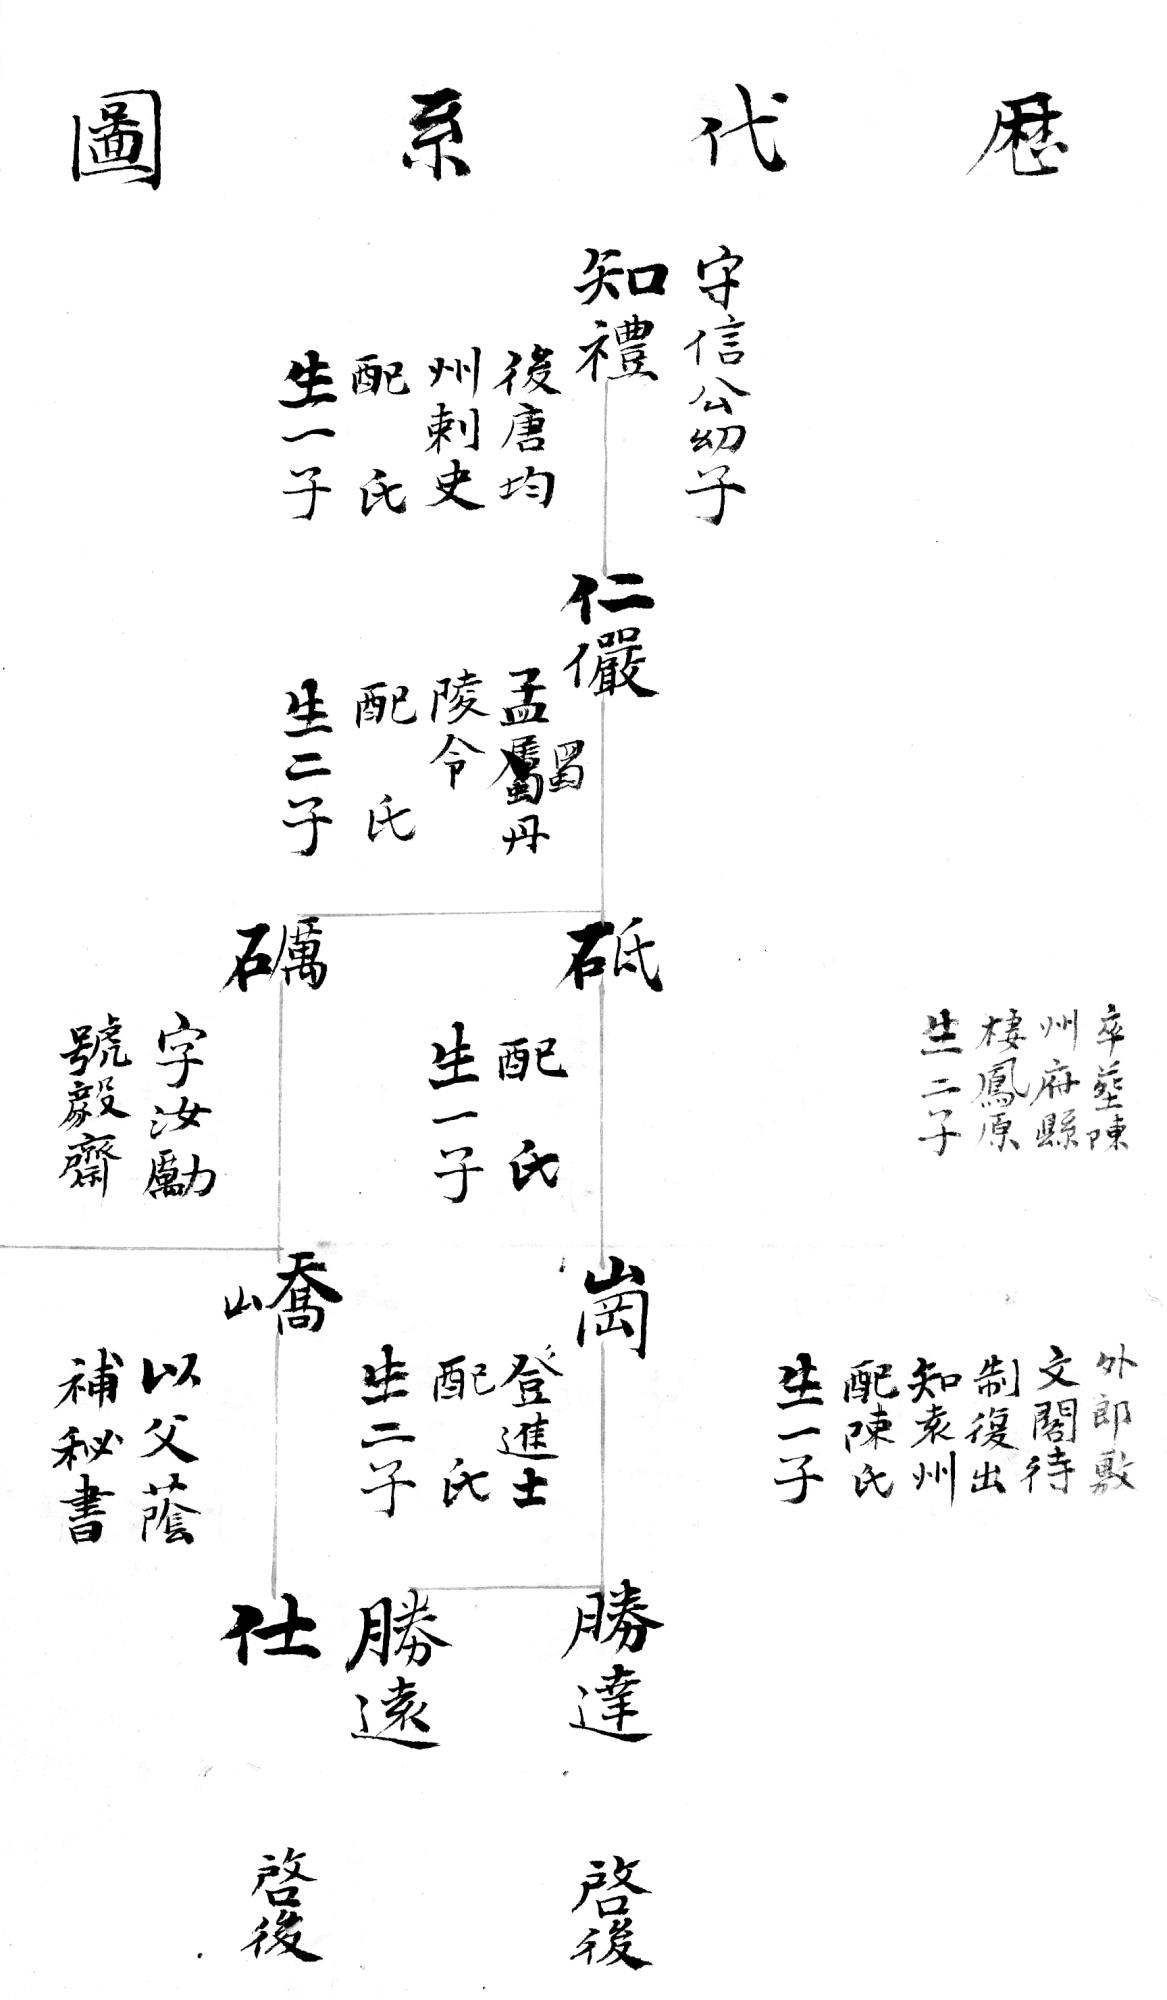 歷代系圖
守信公幼子
知禮
後唐均
州刺史
配 氏
生一子
仁儼
孟蜀丹
陵令
配 氏
生二子
砥
礪
卒塟陳
州府縣
棲鳳原
生二子
配 氏
生一子
字汝勵
號毅齋
崗
嶠
外郎敷
文閣待
制復出
知袁州
配陳氏
生一子
登進士
配 氏
生二子
以父蔭
補秘書
勝達
勝遠
仕
啓後
啓後